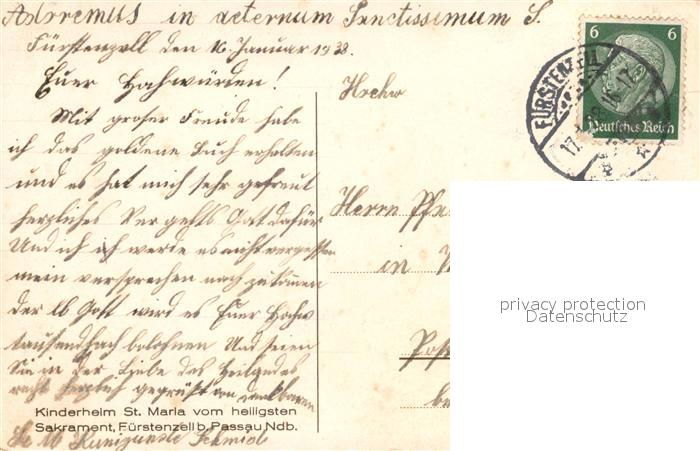 Adoremus in aeternum Sanctissimum S.
Fürstenzell den 16. Januar 1938.
Euer Hochwürden!
Mit groser Freude habe
ich das goldene Buch erhalten
und es hat mich sehr gefreut
herzliches Vergelts Gott dafür
Und ich werde es nicht vergessen
mein versprechen nach zu komen
der lb Gott wird es Euer Hochw
tausendfach belohnen Und seien
Sie in der Liebe des Heilandes
recht herzlich gegrüßt von dankbaren
Kinderheim St. Maria vom heiligsten
Sakrament, Fürstenzell b. Passau Ndb.
Kunigunde Schmid
Hochw
Herrn Pfa
in
Pos
be
6 6
Deutsches Reich
FÜRSTENZELL
17.
privacy protection
Datenschutz